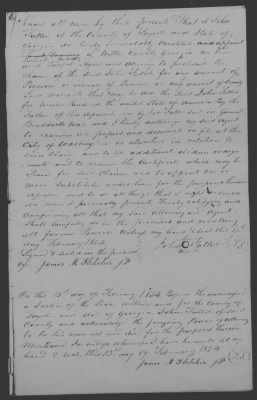 Know all men by these presents that I John
Tuller of the County of and State of
Georgia do hereby irrevocably constitute and appoint
of County Georgia my true
and lawful Agent and Attorney to prosecute the
claim of the said John Tuller for any amount of
Pension or increase of Pension or any amount of money
Land warrant that may be due the said John Tuller
for service rendered the united States of America By the
Father of this deponent or by his Father said
war and I hereby authorize my said Agent
to examine all papers and documents on file at the
City of Washington or elsewhere in relation to
said claim and to file additional evidence or argu
ments and to receive the certificate which may be
issued for said claim and to appoint one or
more substitutes under him for the purposes herein
expressed and to do all things that I might or could
do were I personally present Hereby ratifying and
confirming all that my said Attorney or Agent
shall lawfully do in the premises and revoking
all former Powers. Witness my hand & seal this 13th
day February 1854
Signed & sealed in the presence John Tuller LS
of mark
James M. Fletcher JP

On this 13th day of February 1854 Before the undersigned
a Justice of the Peace within and for the County of
and State of Georgia, John Tuller of said
County and acknowledge the foregoing Power of Attorney
to be his own act and deed for the purposes therein
Mentioned In witness whereof I have hereunto set my
hand & seal, this 13th day of February 1854
James M. Fletcher JP (LS)